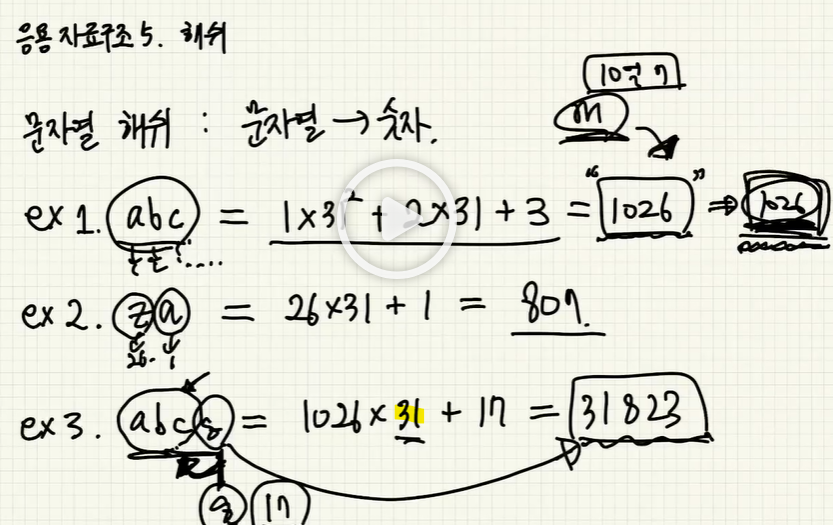 응용 자료구조 5. 해쉬
10월 7
m
문자열 해쉬 : 문자열 → 숫자.
ex 1. abc = 1×31² + 2×31 + 3 = "1026" ⇒ 1026
ex 2. za = 26×31 + 1 = 807.
26. 1
ex 3. abcq = 1026 × 31 + 17 = 31823
q 17